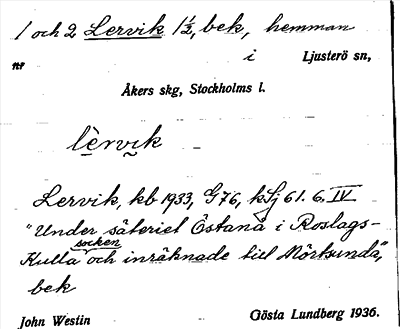 1 och 2 Lervik 1½, bek, hemman
nr i Ljusterö sn,
Åkers skg, Stockholms l.
lèrvik
Lervik, kb 1933, G76, kSj 61. 6. IV
"Under säteriet Östanå i Roslags-
socken
Kulla och inräknade till Mörtsunda",
bek
John Westin Gösta Lundberg 1936.